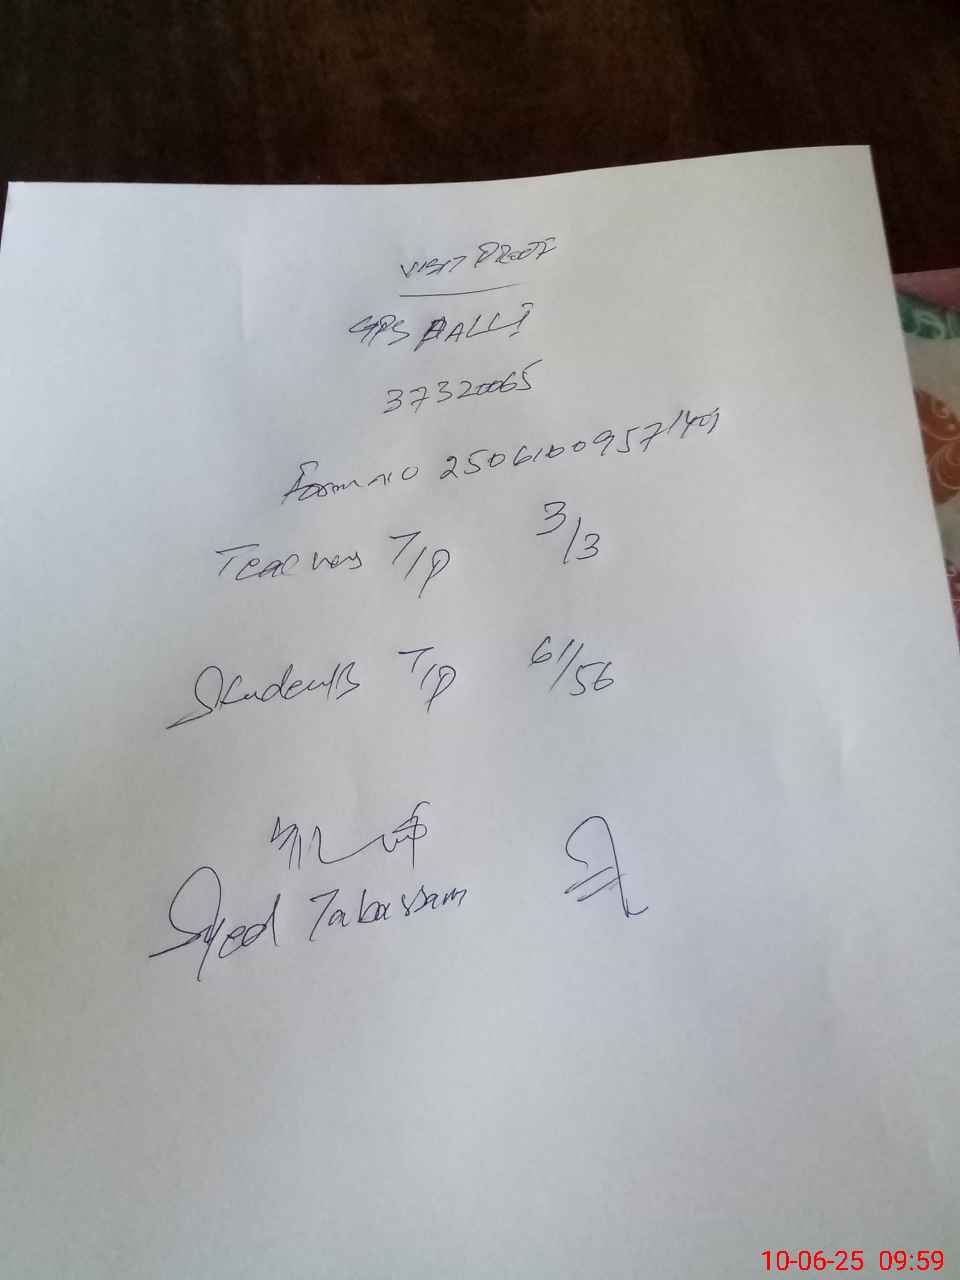 VISIT PROOF
GPS HALLI
37320065
Form no 2506100957
Teachers T/P 3/3
Students T/P 61/56
Syed Tabassam
10-06-25 09:59